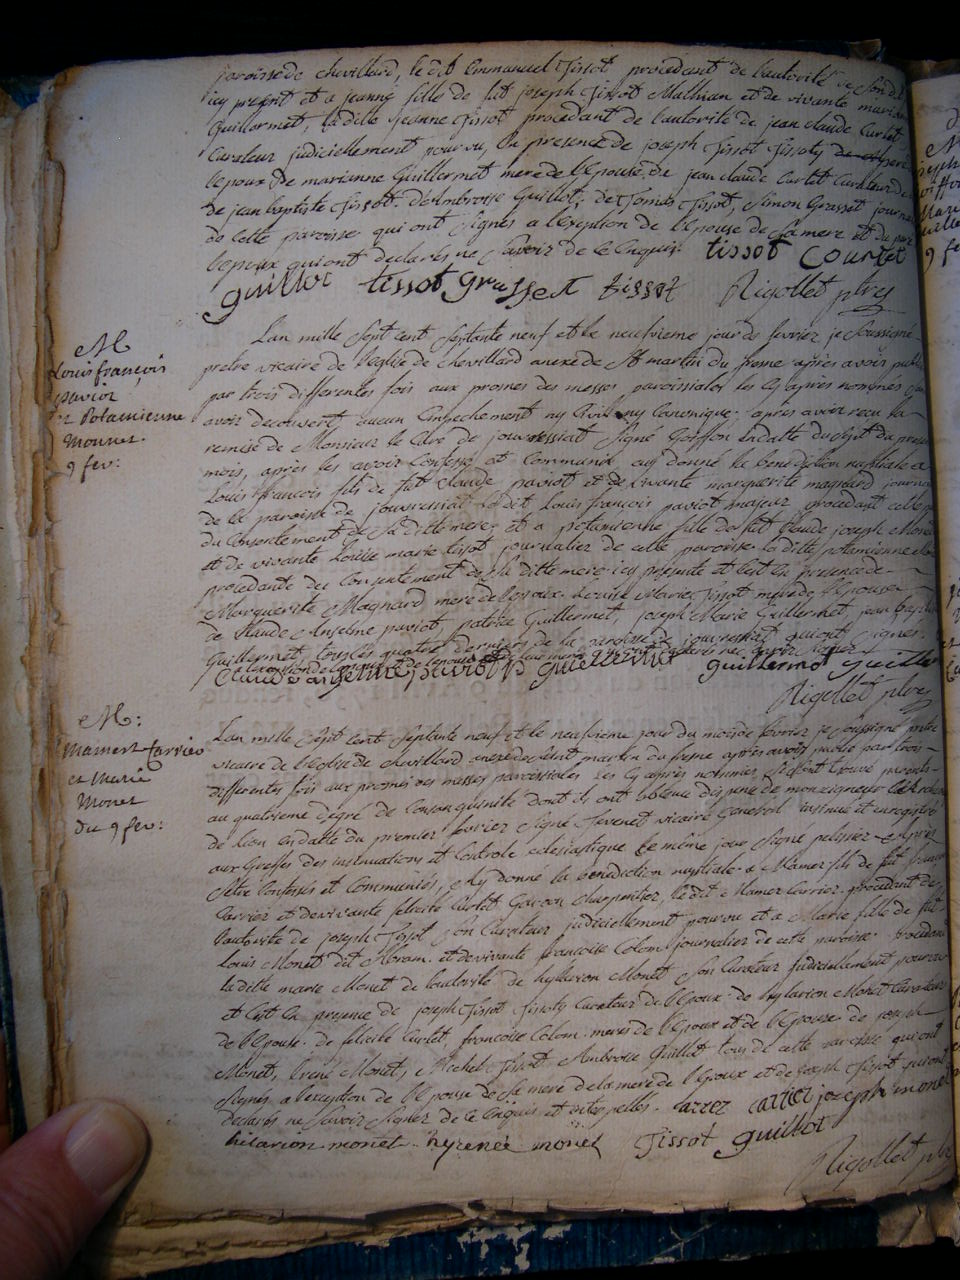 paroisse de chevillard, le dit Emmanuel Tissot procedant de l'autorité de son
icy present et a jeanne fille de fut joseph Tissot Mathian et de vivante mari
Guillermet, laditte jeanne Tissot procedant de l'autorité de jean claude Curlet
Curateur judiciellement pourvu, En presence de joseph Tissot Tissoty
lepoux de marianne Guillermet mere de lEpouse, de jean claude Curlet Curateur
de jean baptiste Tissot. d'Ambroise Guillot; de Tissot, Simon Grasset journa
de cette paroisse qui ont signés a l'exception de l'Epouse de sa mere et du
lepoux qui ont declarés ne sçavoir de ce Enquis. tissot Courlet
guillot tissot grasset tissot Rigollet ptre
M
Louis françois
paviot
et Potamienne
Mounet
9 fev:
Lan mille sept cent septante neuf et le neufvieme jour de fevrier je soussigné
pretre vicaire de l'eglise de Chevillard anexe de St martin du fresne après avoir publi
par trois differentes fois aux prones des messes paroissiales les Cy après nommés
avoir decouvert aucun Empechement ny Civil ny Canonique. après avoir recu la
remise de Monsieur le Curé de jouvressiat signé Goiffon en datte du sept du present
mois, après les avoir Confessé et Communié ay donné la benediction nuptiale a
Louis françois fils de fut Claude paviot et de vivante marguerite magnard journa
de la paroisse de jouvressiat, le dit Louis françois paviot majeur procedant
du Consentement de sa ditte mere; et a potamienne fille de fut Claude joseph Mone
et de vivante Louise marie tissot journalier de cette paroisse. la ditte potamienne
procedante du Consentement de sa ditte mere icy presente et c'est En presence de
Marguerite Magnard mere de lepoux. Louise Marie Tissot mere de l'Epouse
de Claude Anselme paviot, patrice Guillermet, joseph Marie Guillermet, jean
Guillermet tous les quatre derniers de la paroisse de jouvressiat qui ont signés.
Claude anselme paviot guillermet guillermet guiller
Rigollet ptre
M:
Mamert Carrier
et Marie
Monet
du 9 fev:
Lan mille sept cent septante neuf et le neufvieme jour du mois de fevrier je soussigné pretre
vicaire de l'eglise de chevillard anexe de st martin du fresne après avoir publié par trois
differentes fois aux prones des messes paroissiales les Cy après nommés, s'etant trouvé parents
au quatrieme degré de Consanguinité dont ils ont obtenu dispense de monseigneur
de lion en datte du premier fevrier signé vicaire General insinué et enregistré
aux Greffes des insinuations et Controle eclesiastique le même jour signé pelissier
s'etre Confessés et Communiés, ay donné la benediction nuptiale a Mamer fils de fut
Carrier et de vivante felicité Curlet Garcon charpentier, le dit Mamer Carrier procedant de
l'autorité de joseph Tissot son Curateur judiciellement pourvu et a Marie fille de fut
Louis Monet dit Abram. et de vivante francoise Colom journalier de cette paroisse. procedant
la ditte marie Monet de l'autorité de hylarion Monet son Curateur judiciellement pourvu
et c'est En presence de joseph Tissot Tissoty Curateur de l'Epoux. de hylarion Monet Curateur
de l'Epouse. de felicité Curlet, francoise Colom. meres de l'Epoux et de l'Epouse. de joseph
Monet, Monet, Michel Tissot, Ambroise Guillot tous de cette paroisse qui ont
signés a l'exception de l'Epouse de sa mere de la mere de l'Epoux et de joseph Tissot qui ont
declarés ne sçavoir signer de ce Enquis et interpellés. Carrier jozeph monet
hilarion monet hyrenée monet Tissot guillot
Rigollet ptre